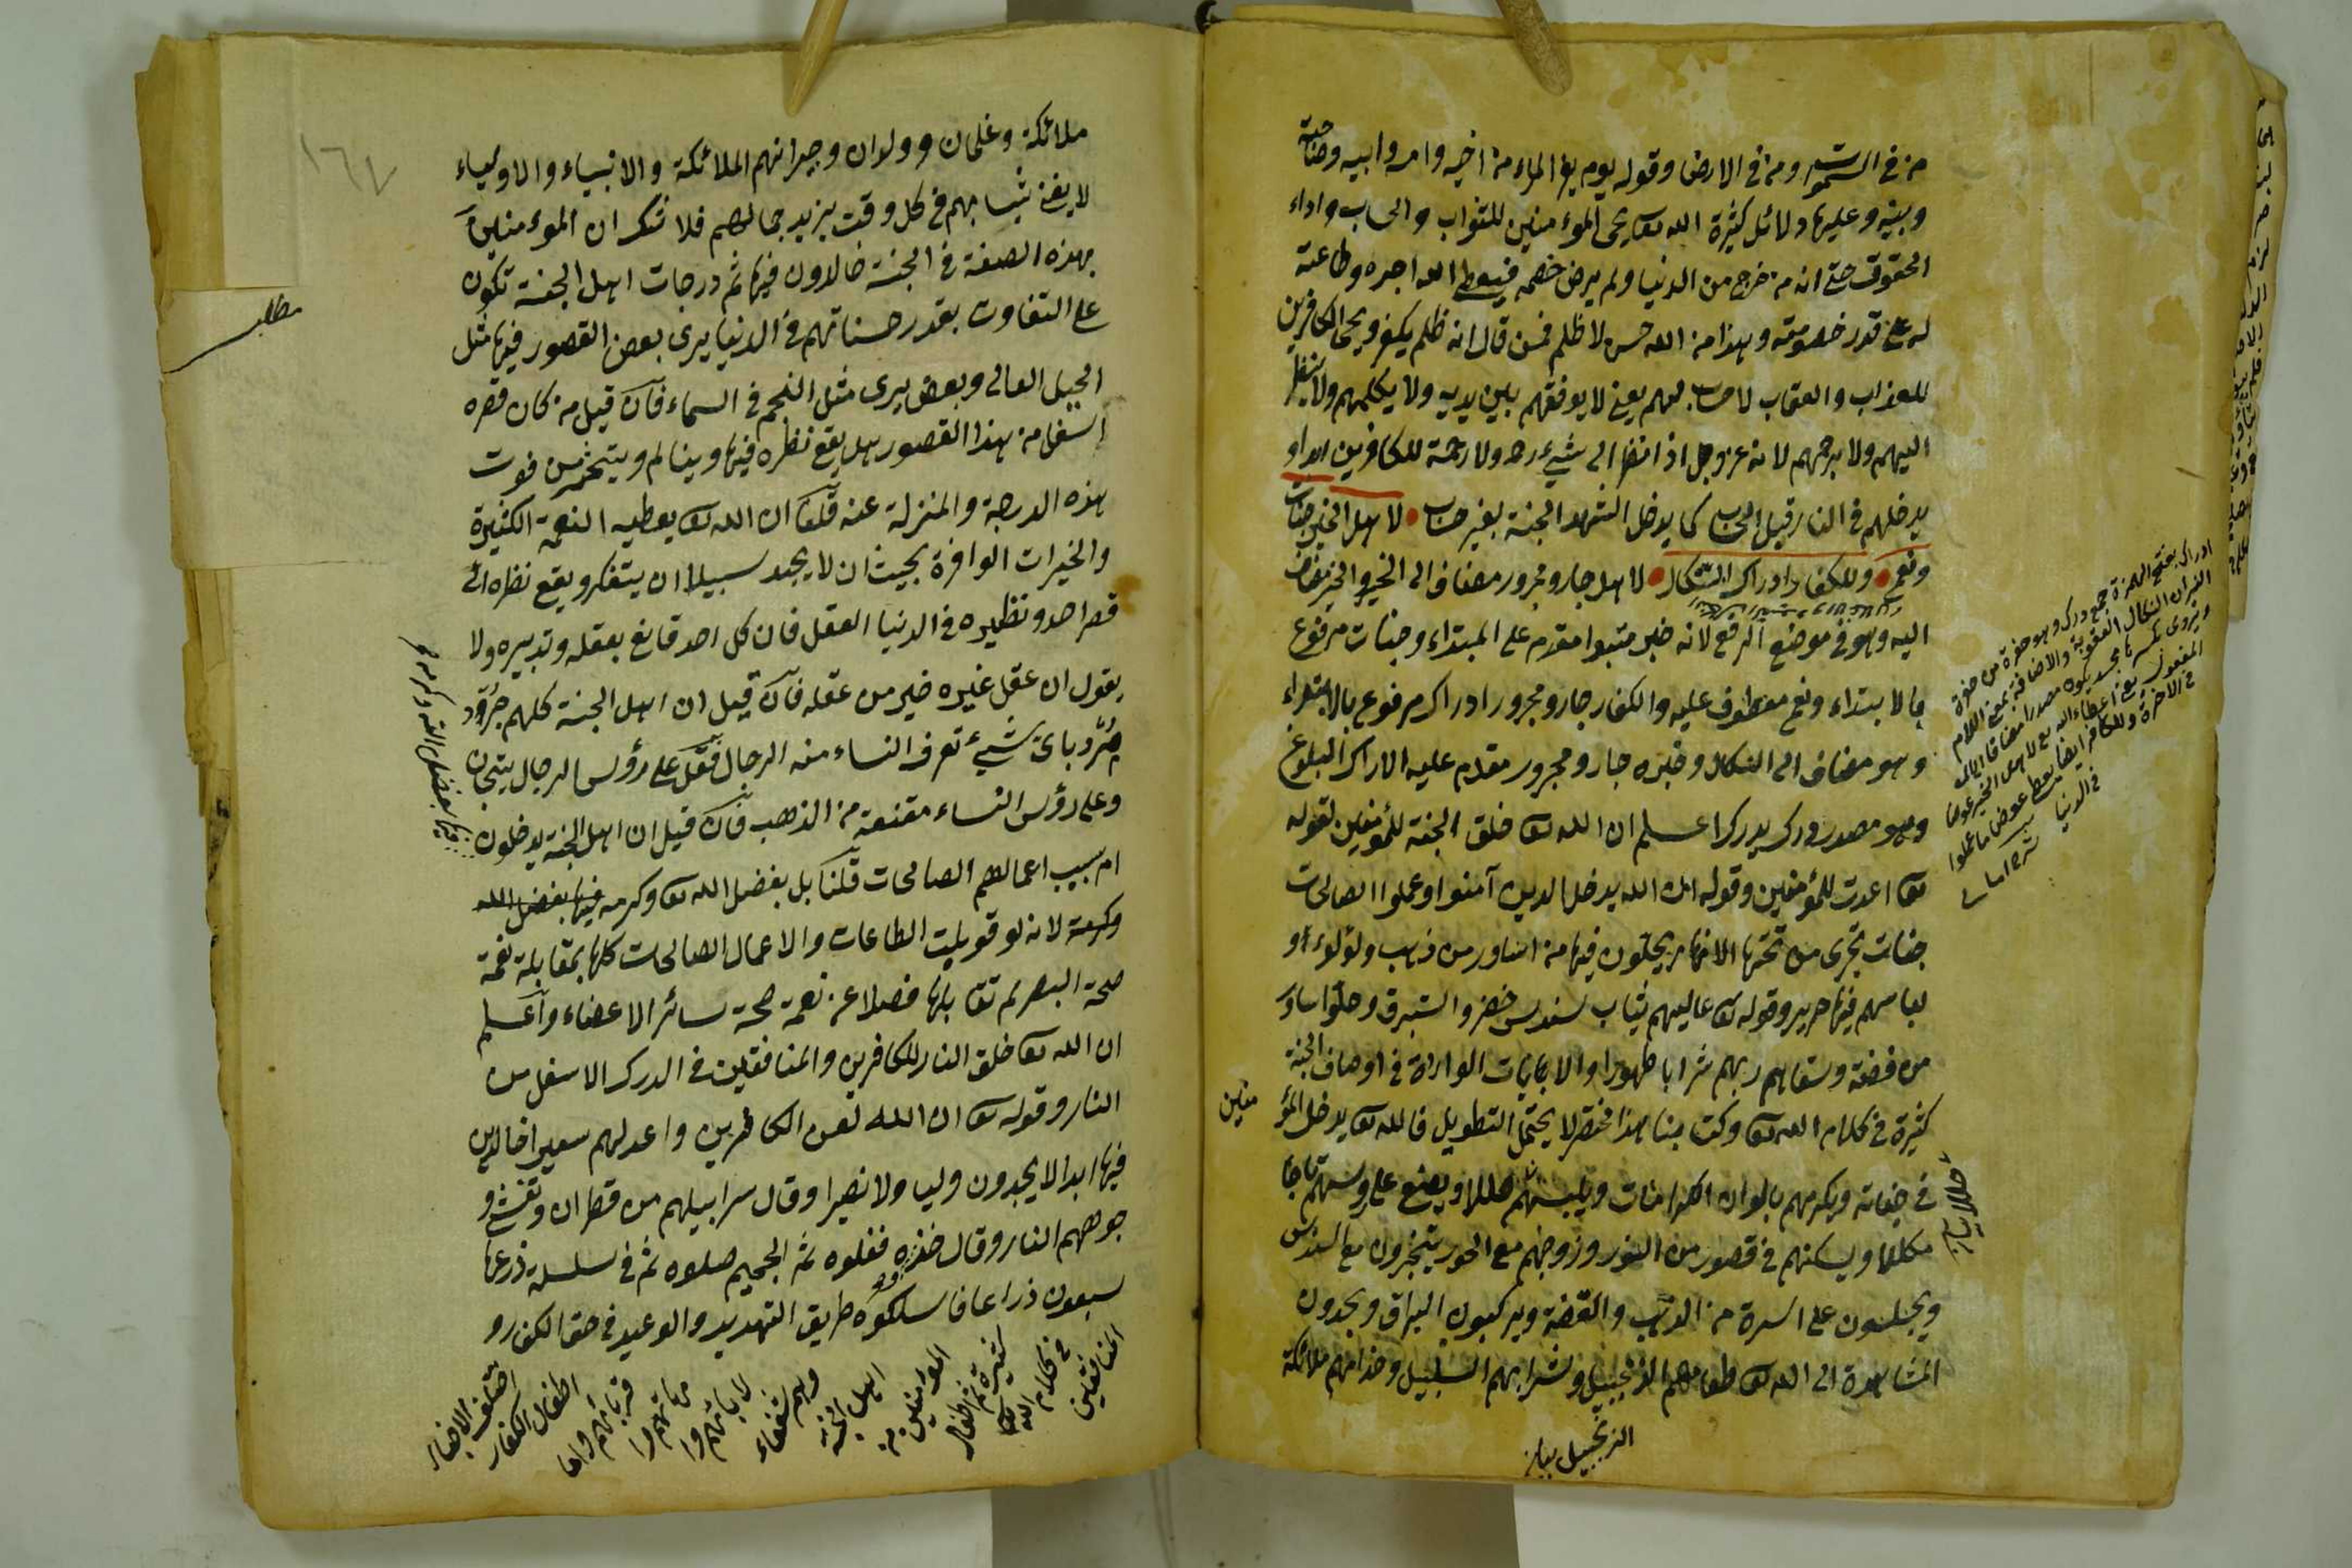 من في السموت ومن في الارض وقوله يوم يفر المرء من اخيه وامه وابيه وصاحبته
وبنيه وعليها دلائل كثيرة الله تعا يحيى المؤمنين للثواب والحساب واداء
الحقوق حتى انه من خرج من الدنيا ولم يرض خصمه فيعطي الله اجره وطاعته
له على قدر خصومته وهذا من الله حسن لا ظلم فمن قال انه ظلم يكفر ويحيى الكافرين
للعذاب والعقاب لا حساب لهم يعني لا يوقفهم بين يديه ولا يكلمهم ولا ينظر
اليهم ولا يرحمهم لانه عز وجل اذا نظر الى شيء رحمه ولا رحمة للكافرين ابدا و
يدخلهم في النار قبل الحساب كما يدخل الشهداء الجنة بغير حساب لاهل الخير جنات
ونعمى وللكفار ادراك النكال لاهل جار ومجرور مضاف الى الخير والخير مضاف
اليه وهو في موضع الرفع لانه خبر مبتدا مقدم على المبتداء وجنات مرفوع
بالابتداء ونعمى معطوف عليه والكفار جار ومجرور ادراك مرفوع بالابتداء
وهو مضاف الى النكال وخبره جار ومجرور مقدم عليه الادراك البلوغ
وهو مصدر ادرك يدرك اعلم ان الله تعا خلق الجنة للمؤمنين لقوله
تعا اعدت للمؤمنين وقوله ان الله يدخل الذين آمنوا وعملوا الصالحات
جنات تجرى من تحتها الانهار يحلون فيها من اساور من ذهب ولؤلوءا و
لباسهم فيها حرير وقوله تعا عاليهم ثياب سندس خضر واستبرق وحلوا اساور
من فضة وسقاهم ربهم شرابا طهورا والايات الواردة في اوصاف الجنة
كثيرة في كلام الله تعا وكتابنا هذا مختصر لا يحتمل التطويل فالله تعا يدخل المؤ
منين
في جناته ويكرمهم بالوان الكرامات ويلبسهم حللا ويضع على رؤسهم تاجا
مكللا ويسكنهم في قصور من النور وزوجهم مع الحور يتبخترون مع السندس
ويجلسون على اسرة من الذهب والفضة ويركبون البراق ويجدون
المشاهدة الى الله تعا طعامهم الزنجبيل وشرابهم السلسبيل وخدامهم ملائكة
الزنجبيل بيان
حللا بيان
ادراك بفتح الهمزة جمع درك وهو حفرة من حفرة
النيران النكال العقوبة والاضافة بمعنى اللام
ويروى بكسرها بحسب يكون مصدرا مضافا الى
المفعول يعني اعطاء الله تع لاهل الخير عوضا
في الاخرة وللكافر ايضا يعطي عوض ما عملوا
في الدنيا
١٦٧
مطلب
ملائكة وغلمان وولدان وجيرانهم الملائكة والانبياء والاولياء
لا يفنى ثيابهم في كل وقت يزيد جمالهم فلا شك ان المؤمنين
بهذه الصفة في الجنة خالدون فيها ثم درجات اهل الجنة تكون
على التفاوت بقدر حسناتهم في الدنيا يرى بعض القصور فيها مثل
الجبل العالى وبعض يرى مثل النجم في السماء فان قيل من كان قصره
اسفل من هذا القصور هل يقع نظره فيها وينالم ويتحسر من فوت
هذه الدرجة والمنزلة عنه قلنا ان الله تعا يعطيه النعمة الكثيرة
والخيرات الوافرة بحيث ان لا يجد سبيلا ان يتفكر ويقع نظره الى
قصر احد ونظيره في الدنيا العقل فان كل احد قانع بعقله وتدبيره ولا
يقول ان عقل غيره خير من عقله فان قيل ان اهل الجنة كلهم جرد
مرد باى شيء تعرف النساء من الرجال فقل على رؤس الرجال تيجان
وعلى رؤس النساء مقنعة من الذهب فان قيل ان اهل الجنة يدخلون
فيها بفضل الله وكرمه
ام بسبب اعمالهم الصالحات قلنا بل بفضل الله تعا وكرمه فيها بفضل الله
وكرمه لانه لو قوبلت الطاعات والاعمال الصالحات كلها بمقابلة نعمة
صحة البصر لم تقابلها فضلا عن نعمة صحة سائر الاعضاء واعلم
ان الله تعا خلق النار للكافرين والمنافقين في الدرك الاسفل من
النار وقوله تعا ان الله لعن الكافرين واعد لهم سعيرا خالدين
فيها ابدا لا يجدون وليا ولا نصيرا وقال سرابيلهم من قطران وتغشى و
جوههم النار وقال خذوه فغلوه ثم الجحيم صلوه ثم في سلسلة ذرعها
سبعون ذراعا فاسلكوه طريق التهديد والوعيد في حق الكفار و
المنافقين
في كلام الله تعا
كثيرة ثم اطفال
المؤمنين من
اهل الجنة
وهم شفعاء
لابائهم وا
مهاتهم وا
قربائهم واما
اطفال الكفار
اختلف الاخبار